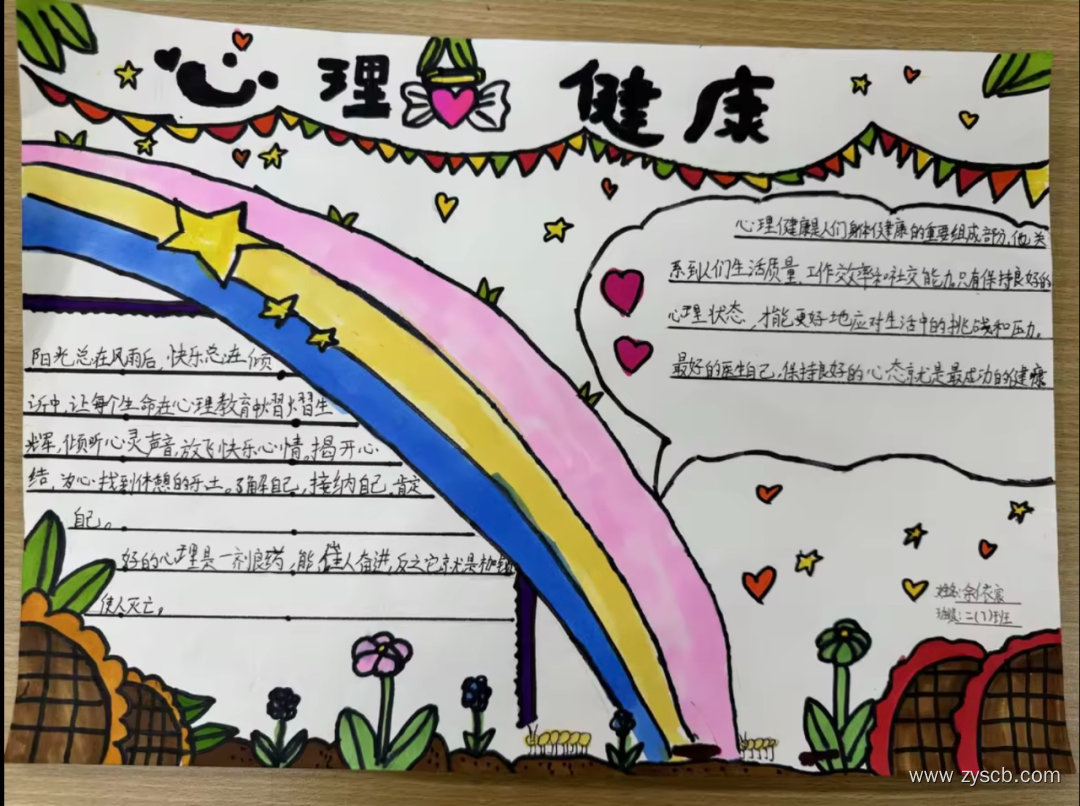 心理健康
心理健康是人们身体健康的重要组成部分,他关
系到人们生活质量、工作效率和社交能力.只有保持良好的
心理状态,才能更好地应对生活中的挑战和压力.
最好的医生自己,保持良好的心态就是最成功的健康
阳光总在风雨后,快乐总在倾
诉中,让每个生命在心理教育中熠熠生
辉,倾听心灵声音,放飞快乐心情。揭开心
结,为心找到休憩的乐土。了解自己,接纳自己,肯定
自己。
好的心理是一剂良药,能催人奋进,反之它就是枷锁
使人灭亡。
姓名:余依宸
班级:二(7)班
www.zyscb.com